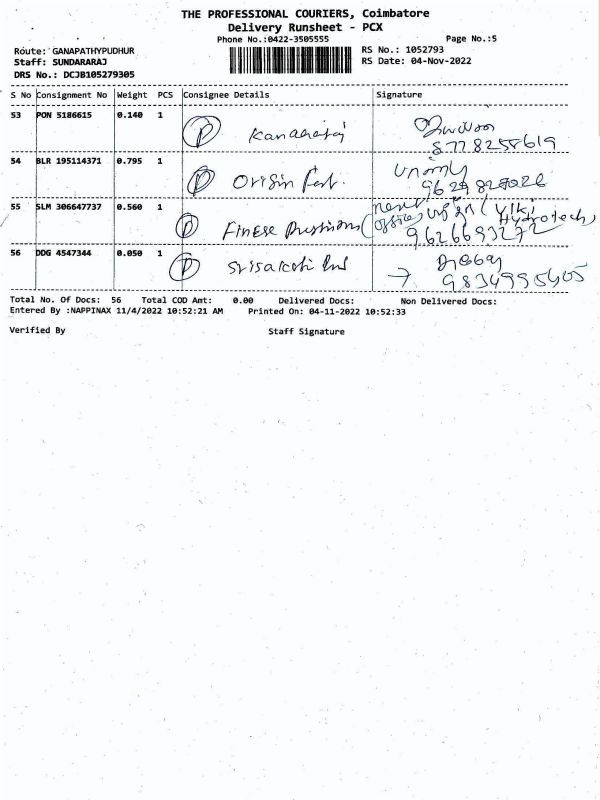 THE PROFESSIONAL COURIERS, Coimbatore
Delivery Runsheet - PCX
Phone No.:0422-3505555 Page No.:5
Route: GANAPATHYPUDHUR RS No.: 1052793
Staff: SUNDARARAJ RS Date: 04-Nov-2022
DRS No.: DCJB105279305
S No Consignment No Weight PCS Consignee Details Signature
53 PON 5186615 0.140 1 P Kanagaraj
8778255619
54 BLR 195114371 0.795 1 P Origin
55 SLM 306647737 0.560 1 P Finese next office Hydrotech)
9626693272
56 DDG 4547344 0.050 1 P Srisakthi
Total No. Of Docs: 56 Total COD Amt: 0.00 Delivered Docs: Non Delivered Docs:
Entered By :NAPPINAX 11/4/2022 10:52:21 AM Printed On: 04-11-2022 10:52:33
Verified By Staff Signature